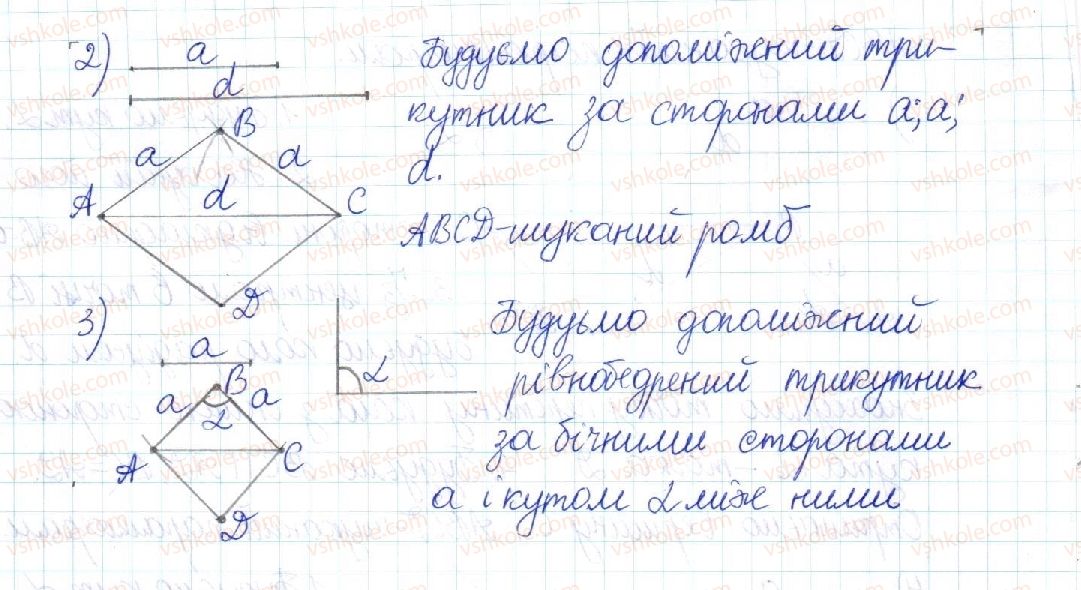 2)
a
d
Будуємо допоміжний три-
кутник за сторонами a; a;
d.
B
a
a
d
A
C
D
ABCD-шуканий ромб
3)
a
α
B
a
a
α
A
C
D
Будуємо допоміжний
рівнобедрений трикутник
за бічними сторонами
a і кутом α між ними
vshkole.com